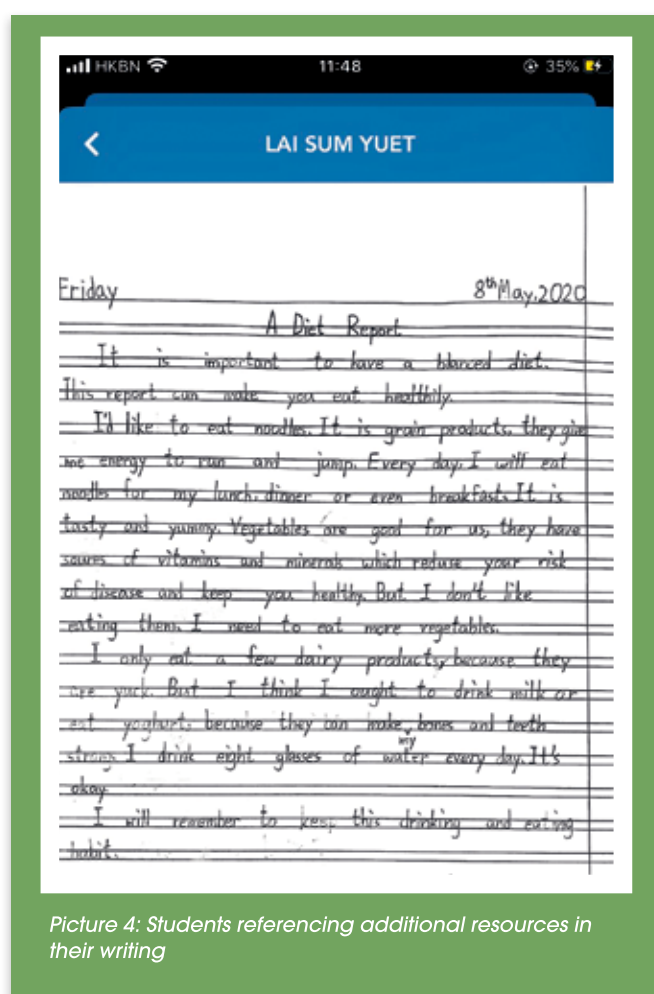 HKBN 11:48 35%
LAI SUM YUET
Friday 8th May, 2020
A Diet Report
It is important to have a blanced diet.
This report can make you eat healthily.
I'd like to eat noodles. It is grain products, they give
me energy to run and jump. Every day, I will eat
noodles for my lunch, dinner or even breakfast. It is
tasty and yummy. Vegetables are good for us, they have
soures of vitamins and minerals which reduse your risk
of disease and keep you healthy. But I don't like
eating them. I need to eat more vegetables.
I only eat a few dairy products, because they
are yuck. But I think I ought to drink milk or
eat yoghurt, because they can make my bones and teeth
strong. I drink eight glasses of water every day. It's
okay.
I will remember to keep this drinking and eating
habit.
Picture 4: Students referencing additional resources in
their writing